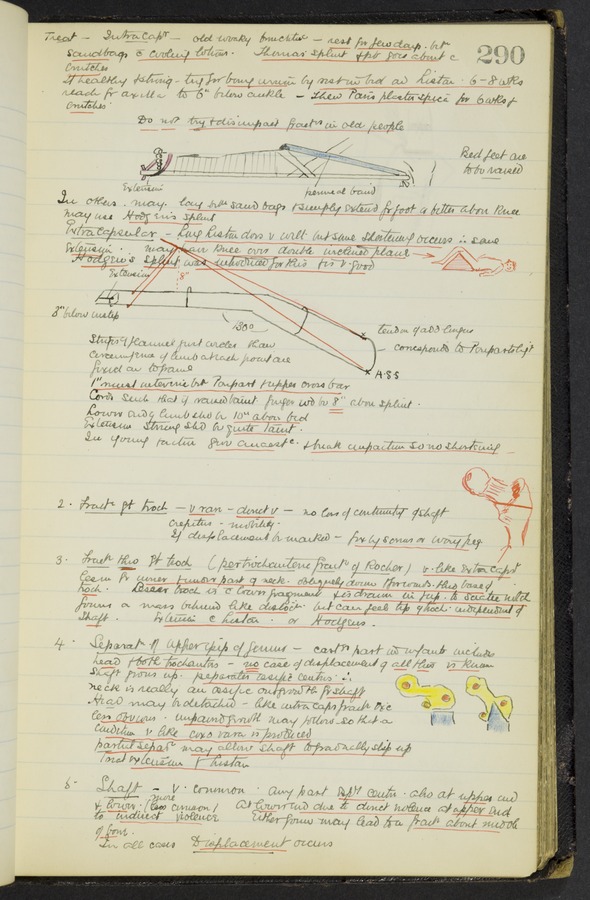 290
Treat – Intracapr – old weakly – rest for few days. but
sandbags & cooling lotion. Thomas' splint & pt goes about c
crutches
If healthy & strong – try for bony union by rest in bed on Liston. 6–8 wks
reach fr axilla to 6" below ankle – then Paris plaster spica for 6 wks &
crutches.
Do not try & disimpact fractrs in old people
Bed feet are
to be raised
Extension
perineal band
In others. may. long sand bags & simply extend fr foot or better above knee
may use Hodgen's splint
Extracapsular – Long Liston does v well but some shortening occurs ∴ some
Extension. may knee over double inclined plane
Hodgen's splint was introduced for this & is v good
Extension
8"
3" below instep
130°
tendon of add longus
corresponds to Pouparts ligt
A.S.S
Strips of flannel just wider than
circumference of limb at each point are
fixed on to frame
1" must intervene bet Poupart & upper cross bar
Cords such that if raised taint finger wd be 8" above splint.
Lower end of limb shd be 10" above bed
Extension string shd be quite taint.
In young patient give anaestc. & break impaction so no shortening
2. Fractr gt troch – v rare – direct v – no loss of continuity of shaft
crepitus – mobility.
If displacement be marked – fix by screws or ivory peg
3. Fractr thro gt troch (pertrochanteric fractr of Kocher) v. like Extracapr
Goes fr inner & upper part of neck. obliquely down & forwards thro base of
troch. troch is c lower fragment & is drawn in & up. to sciatic notch
forms a mass behind like disloctn. but can feel tip of troch. independent of
shaft. Extension c Liston. or Hodgens.
4. Separatn of upper epip of femur – cart part in infants includes
head & both trochanters – no case of displacement of all this is known
Shaft grows up. separates ossific centres ∴
neck is really an ossific outgrowth fr shaft
Head may be detached – like intracaps fractr &c
less obvious. impaired growth may follow so that a
condition v like coxa vara is produced
partial separn may allow shaft to gradually slip up
Treat extension & Liston
5. Shaft – v. common. any part espt centre. also at upper end
& lower. (less common) At lower end due to direct violence at upper end
more
to indirect violence. Either form may lead to a fractr about middle
of bone.
In all cases Displacement occurs